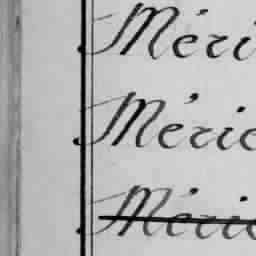 Méri
Méric
Méric